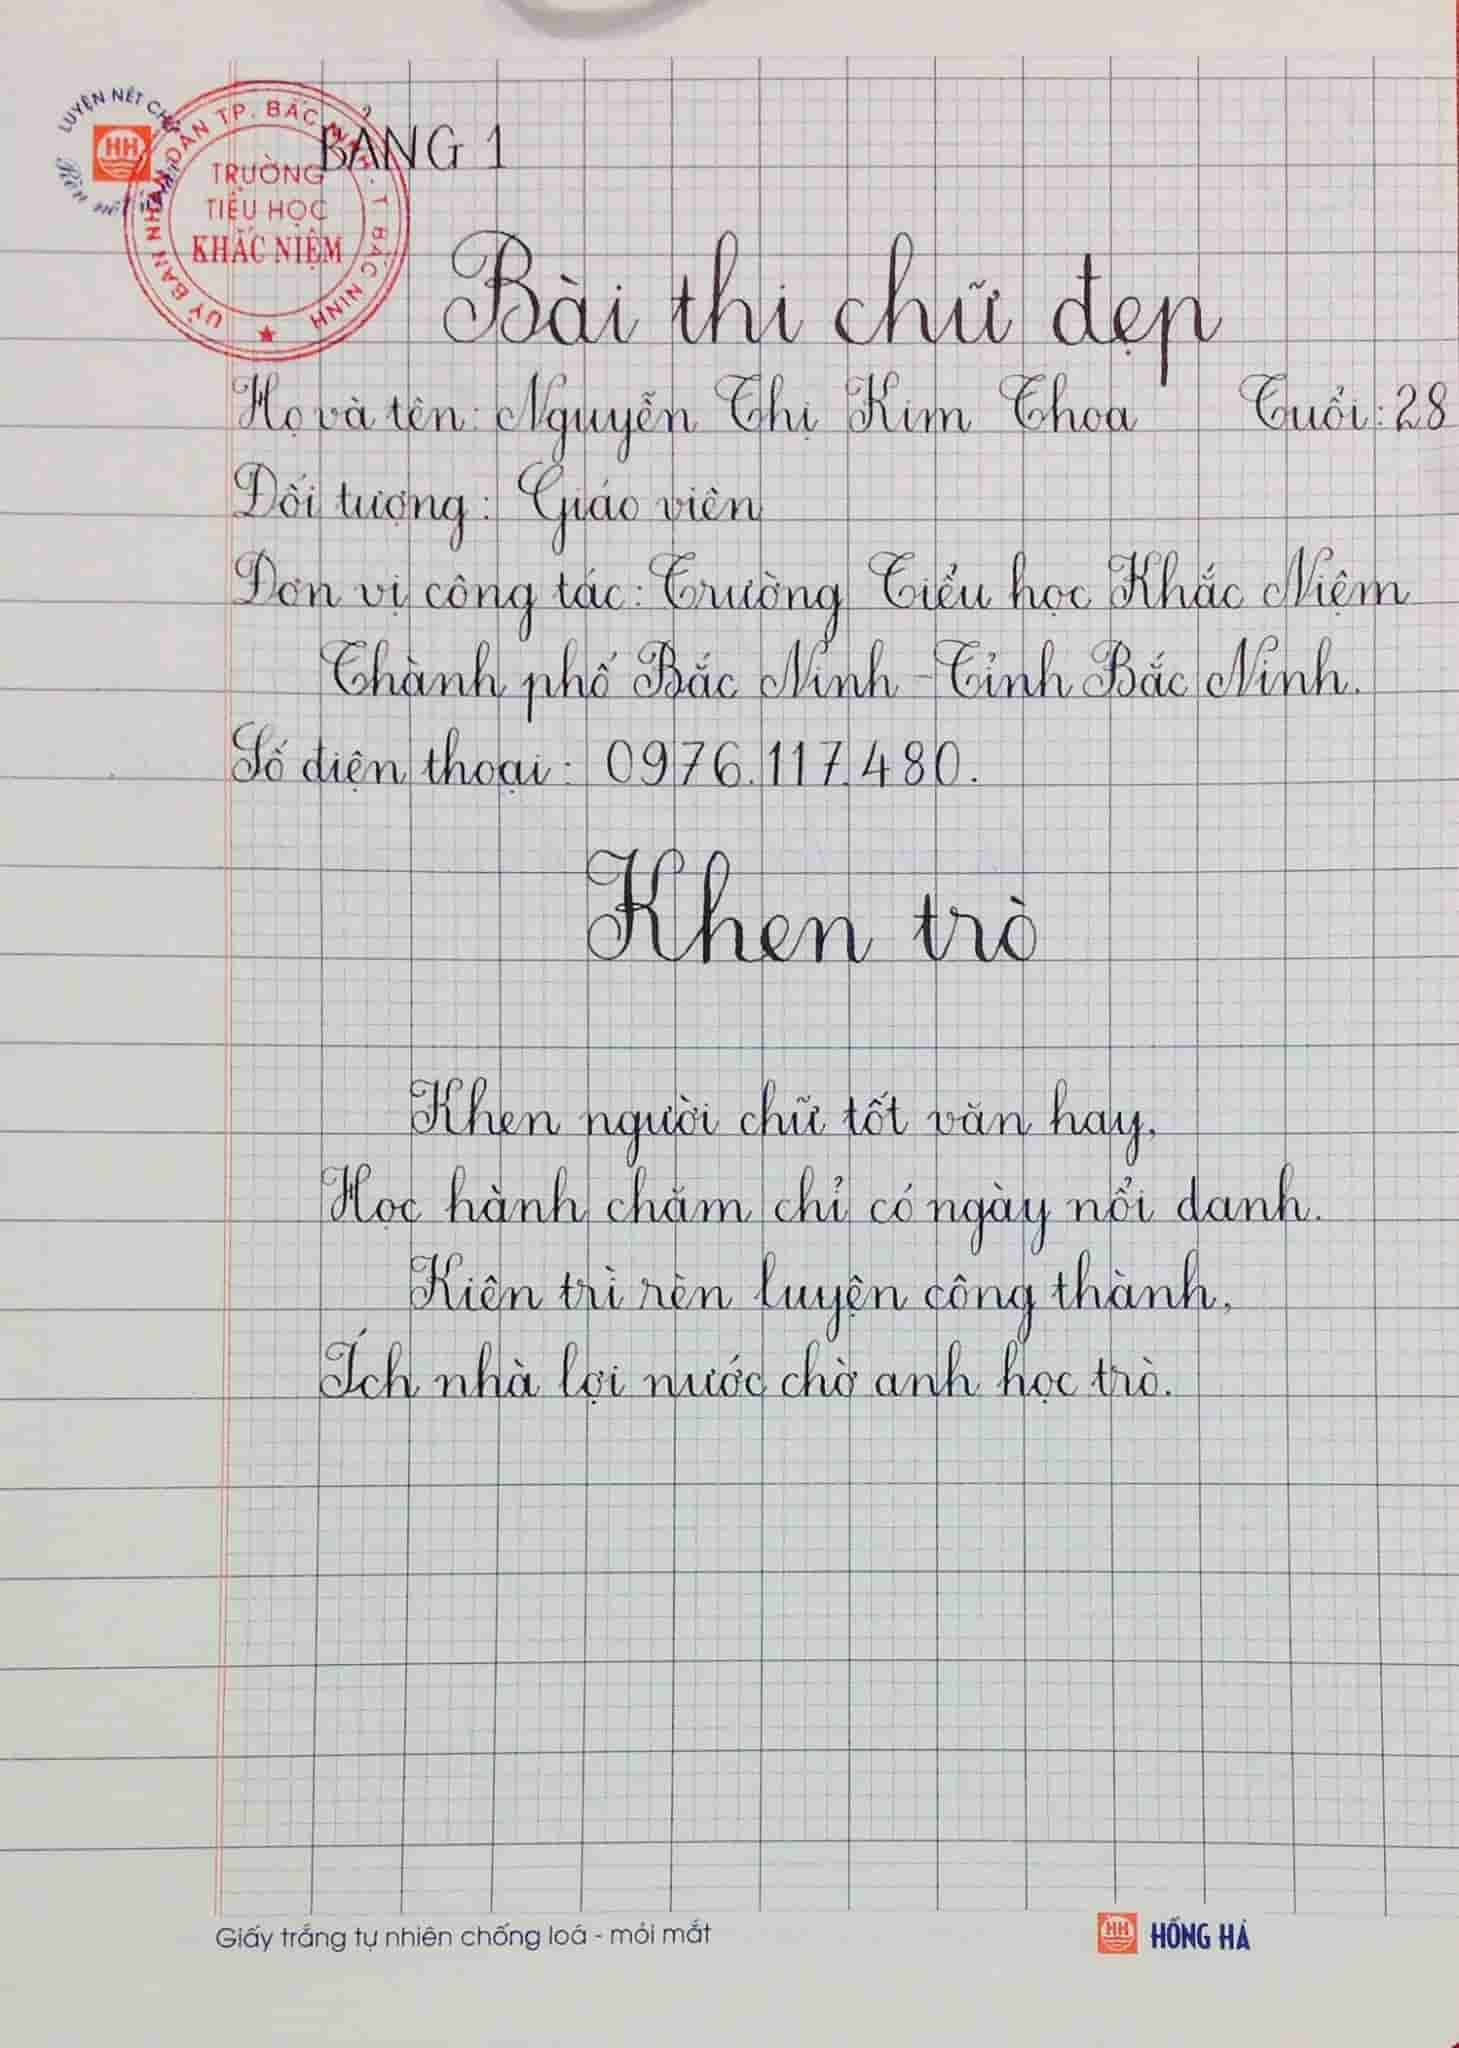 LUYỆN NÉT CHỮ
Rèn nết
HH
UỶ BAN NHÂN DÂN TP. BẮC NINH . T. BẮC NINH
TRƯỜNG
TIỂU HỌC
KHẮC NIỆM
BẢNG 1
Bài thi chữ đẹp
Họ và tên: Nguyễn Thị Kim Thoa Tuổi: 28
Đối tượng: Giáo viên
Đơn vị công tác: Trường Tiểu học Khắc Niệm
Thành phố Bắc Ninh - Tỉnh Bắc Ninh.
Số điện thoại: 0976.117.480.
Khen trò
Khen người chữ tốt văn hay,
Học hành chăm chỉ có ngày nổi danh.
Kiên trì rèn luyện công thành,
Ích nhà lợi nước chờ anh học trò.
Giấy trắng tự nhiên chống loá - mỏi mắt
HH HỒNG HÀ